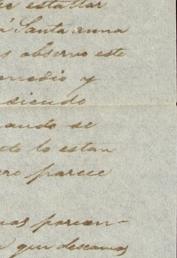 estallar
á Santa anna
observo este
medio y
siendo
ando se
de lo estan
ero parece
que deseamos